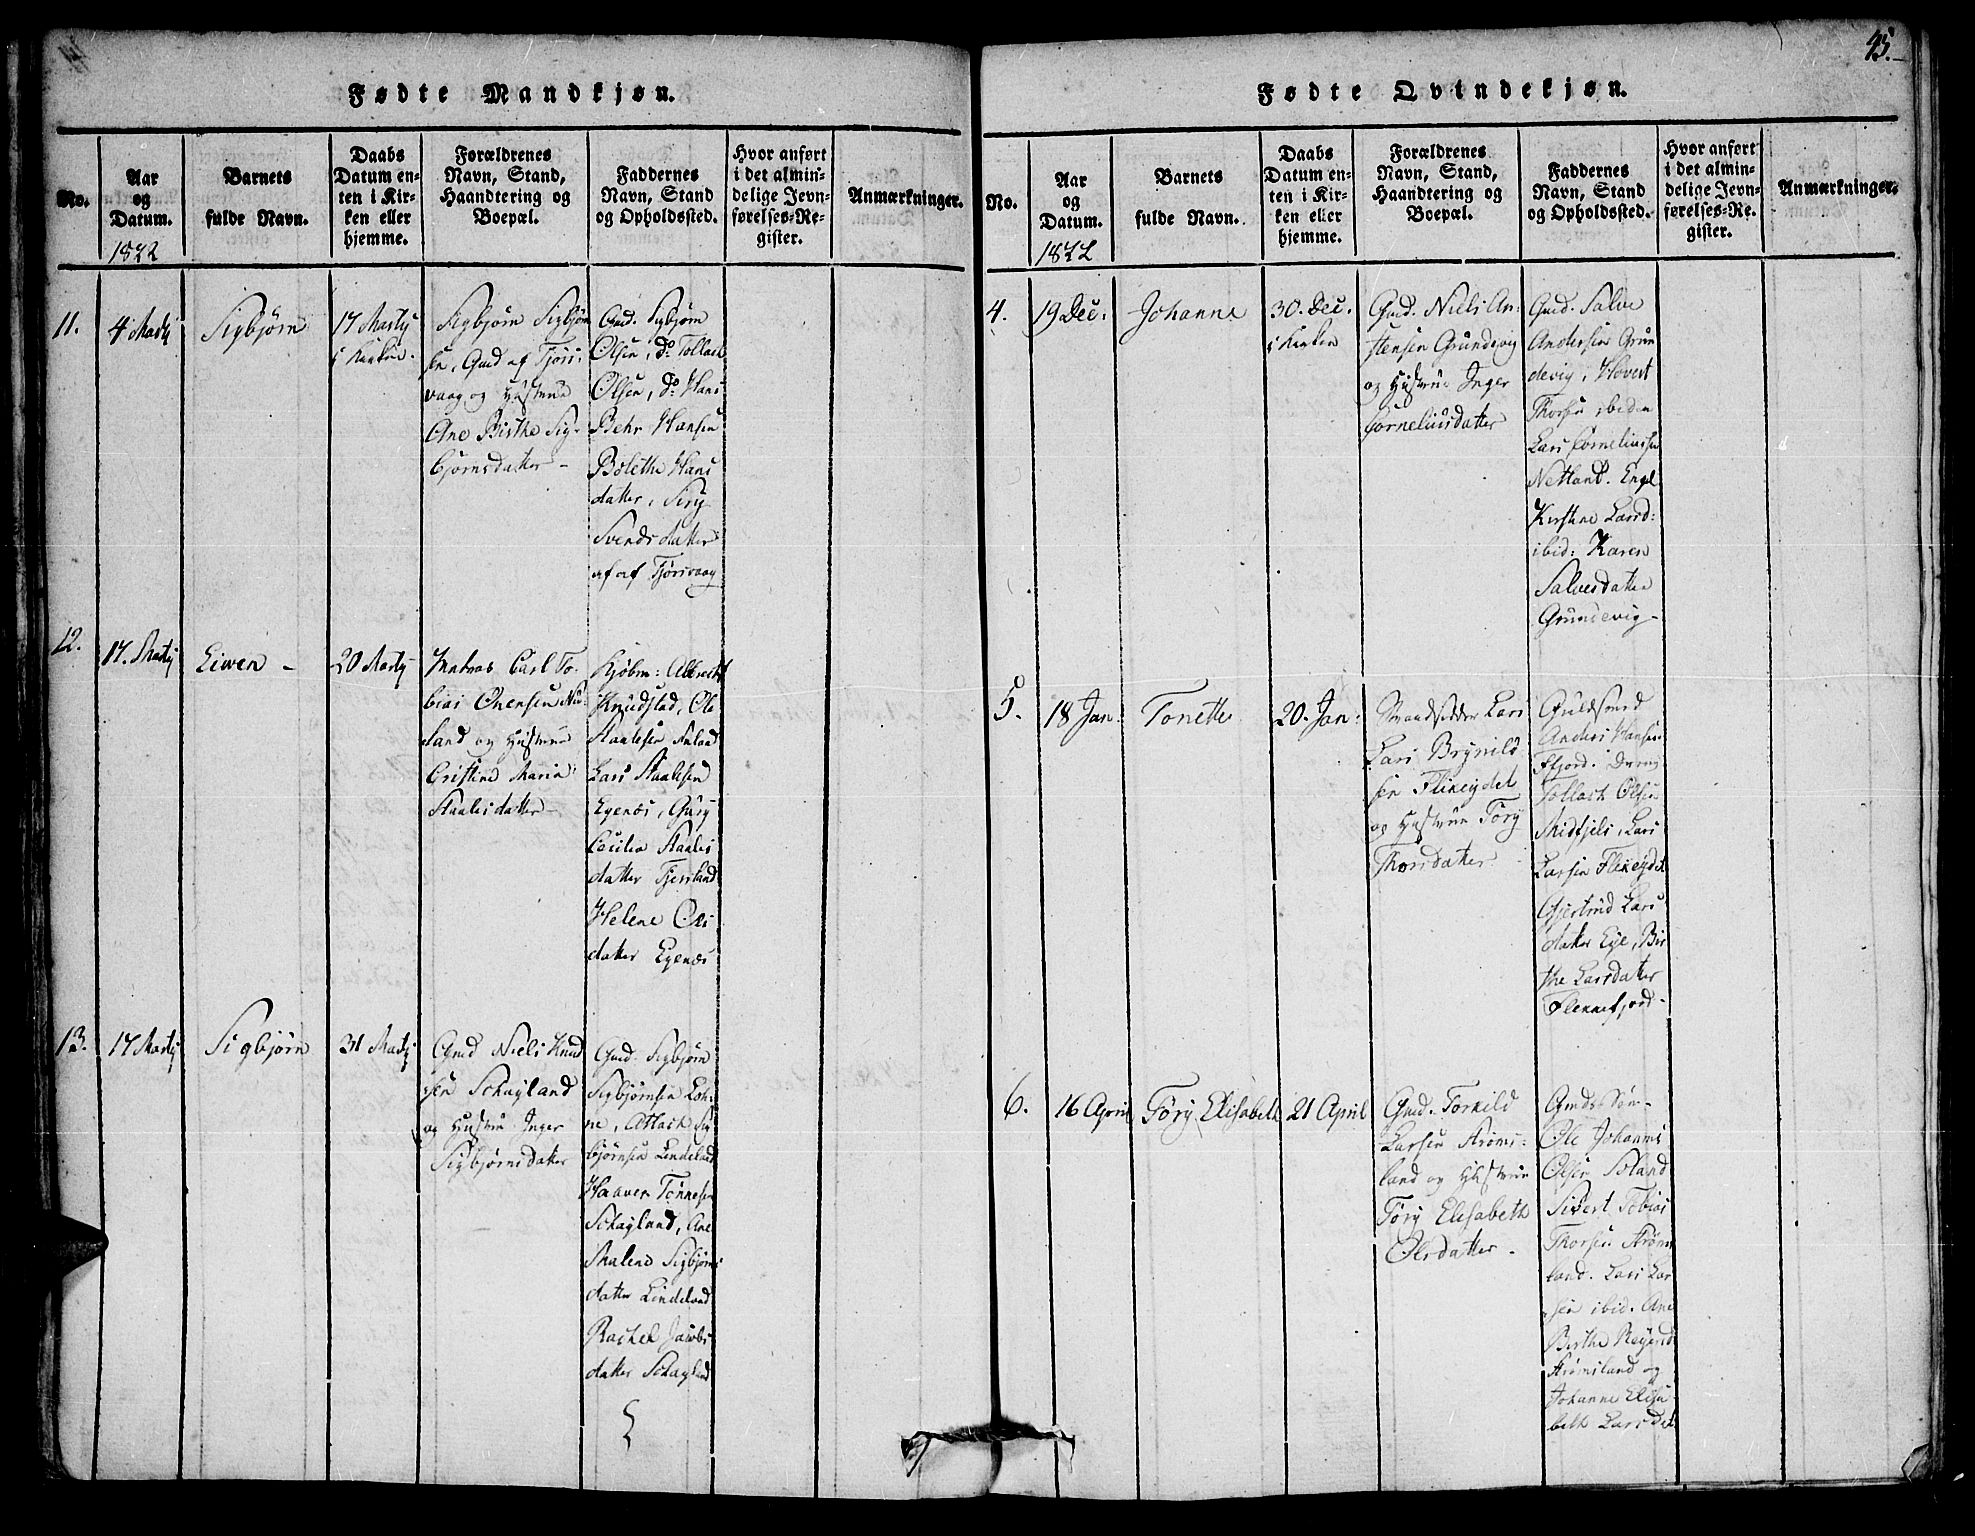 Fødte Mandkjøn.
No.
Aar
og
Datum.
1822
Barnets
fulde Navn.
Daabs
Datum en-
ten i Kir-
ken eller
hjemme.
Forældrenes
Navn, Stand,
Haandtering og
Boepæl.
Faddernes
Navn, Stand
og Opholdssted.
Hvor anført
i det almin-
delige Jevn-
førelses-Re-
gister.
Anmærkninger.
11.
4 Martj
Sigbjørn
17 Martj
i Kirken.
Sigbjørn Sigbjørn
sen, Gmd af Tjørs:
vaag og Hustrue
Ane Birthe Sig-
bjørnsdatter -
Gmd. Sigbjørn
Olsen, do Tollach
Olsen, do Hans
Behr Hansen
Bolethe Hans
datter, Siry
Svendsdatter
af Tjørsvaag
12.
17. Martj
Eiven -
20 Martj
Carl To-
bias
land og Hustrue
Cristine Maria
Staalesdatter -
Kjøbm: Albrecht
Knudstad, Ole
Staalesen
Lars Staalesen
Egenæs, Gury
Cecilia Staales
datter Tjersland
Helene Ols
datter Egenæs
13.
17 Martj
Sigbjørn
31 Martj
Gmd Niels Knud
sen Schagland
og Hustrue Inger
Sigbjørnsdatter
Gmd. Sigbjørn
Sigbjørnsen Loh-
ne, Atlach Sig
bjørnsen Lindeland
Haaver Tønnesen
Schagland, Ane
Malene Sigbjørns
datter Lindeland
Rachel Jacobs
datter Schagland
45.
Fødte Qvindekjøn.
No.
Aar
og
Datum.
1822
Barnets
fulde Navn.
Daabs
Datum en-
ten i Kir-
ken eller
hjemme.
Forældrenes
Navn, Stand,
Haandtering og
Boepæl.
Faddernes
Navn, Stand
og Opholdssted.
Hvor anført
i det almin-
delige Jevn-
førelses-Re-
gister.
Anmærkninger.
4.
19 Dec.
Johanne
30. Dec.
i Kirken
Gmd. Niels An-
stensen Grundevig
og Hustrue Inger
Corneliusdatter
Gmd. Salve
Andersen Grun
devig, Hovert
Thorsen ibidem
Lars Corneliussen
Netland. Engel
Kirstine Larsd:
ibid: Karen
Salvesdatter
Grundevig -
5.
18 Jan:
Tonette
20. Jan:
Strandsidder Lars
Lars Brynild
sen Flikeydet
og Hustrue Tory
Thorsdatter
Guldsmed
Anders Hansen
Tollach Olsen
Midtfjels, Lars
Larsen Flikeydet
Gjertrud Lars
datter Eye, Bir
the Larsdatter
Flekkefjord -
6.
16 April
Tory Elisabeth
21 April
Gmd. Torkild
Larsen Strøms-
land og Hustrue
Tory Elisabeth
Olsdatter -
Gmds Søn -
Ole Johannes
Olsen Soland
Sivert Tobias
Thorsen Strøms
land. Lars Lar
sen ibid. Ane
Birthe Reyersd
Strømsland og
Johanne Elisa
beth Larsdat